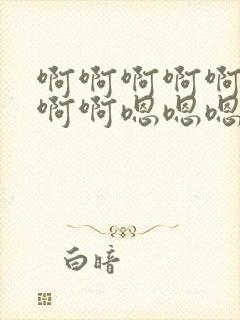 啊啊啊啊啊
啊啊嗯嗯嗯
白暗